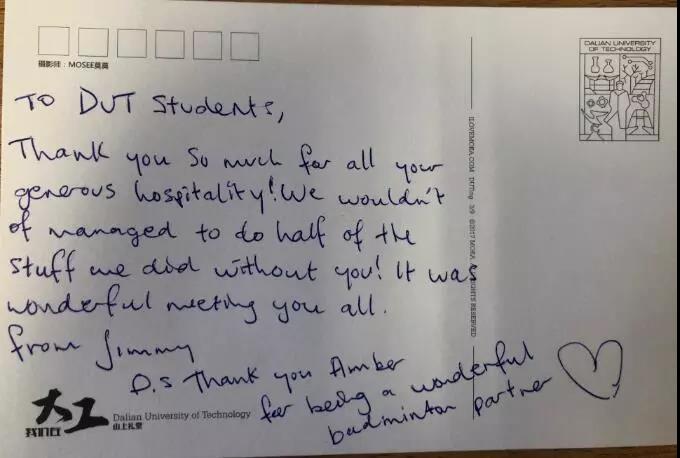 摄影师：MOSEE莫莫
DALIAN UNIVERSITY
OF TECHNOLOGY
To DUT Students,
Thank you so much for all your
generous hospitality! We wouldn't
of managed to do half of the
stuff we did without you! It was
wonderful meeting you all.
from Jimmy
P.s Thank you Amber
for being a wonderful
badminton partner
大工
我们在
Dalian University of Technology
山上礼堂
ILOVEMORA.COM DUTing 3/9 ©2017 MORA. ALL RIGHTS RESERVED